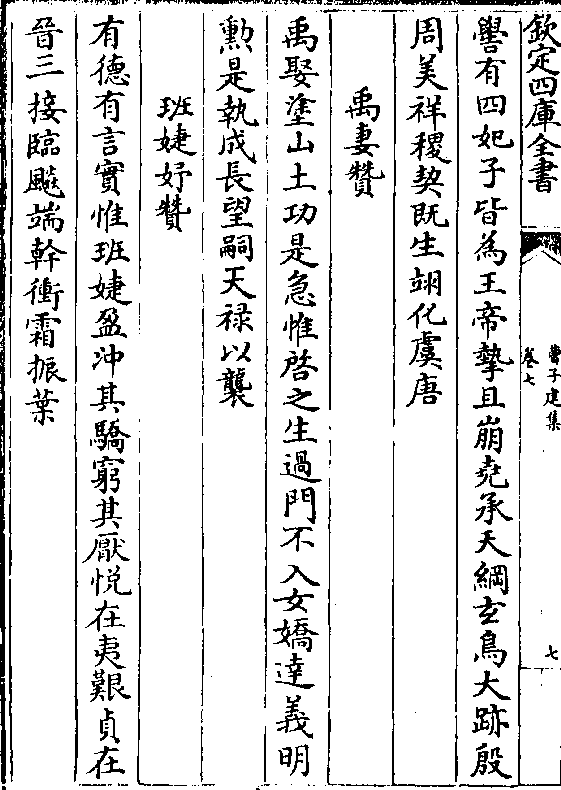 欽定四庫全書
曹子建集
卷七
七
嚳有四妃子皆為王帝摯且崩堯承天綱玄鳥大跡殷
周美祥稷契既生翊化虞唐
禹妻贊
禹娶塗山土功是急惟啓之生過門不入女嬌達義明
勲是執成長望嗣天禄以襲
班婕妤贊
有德有言實惟班婕盈沖其驕窮其厭悦在夷艱貞在
晉三接臨飈端幹衝霜振葉